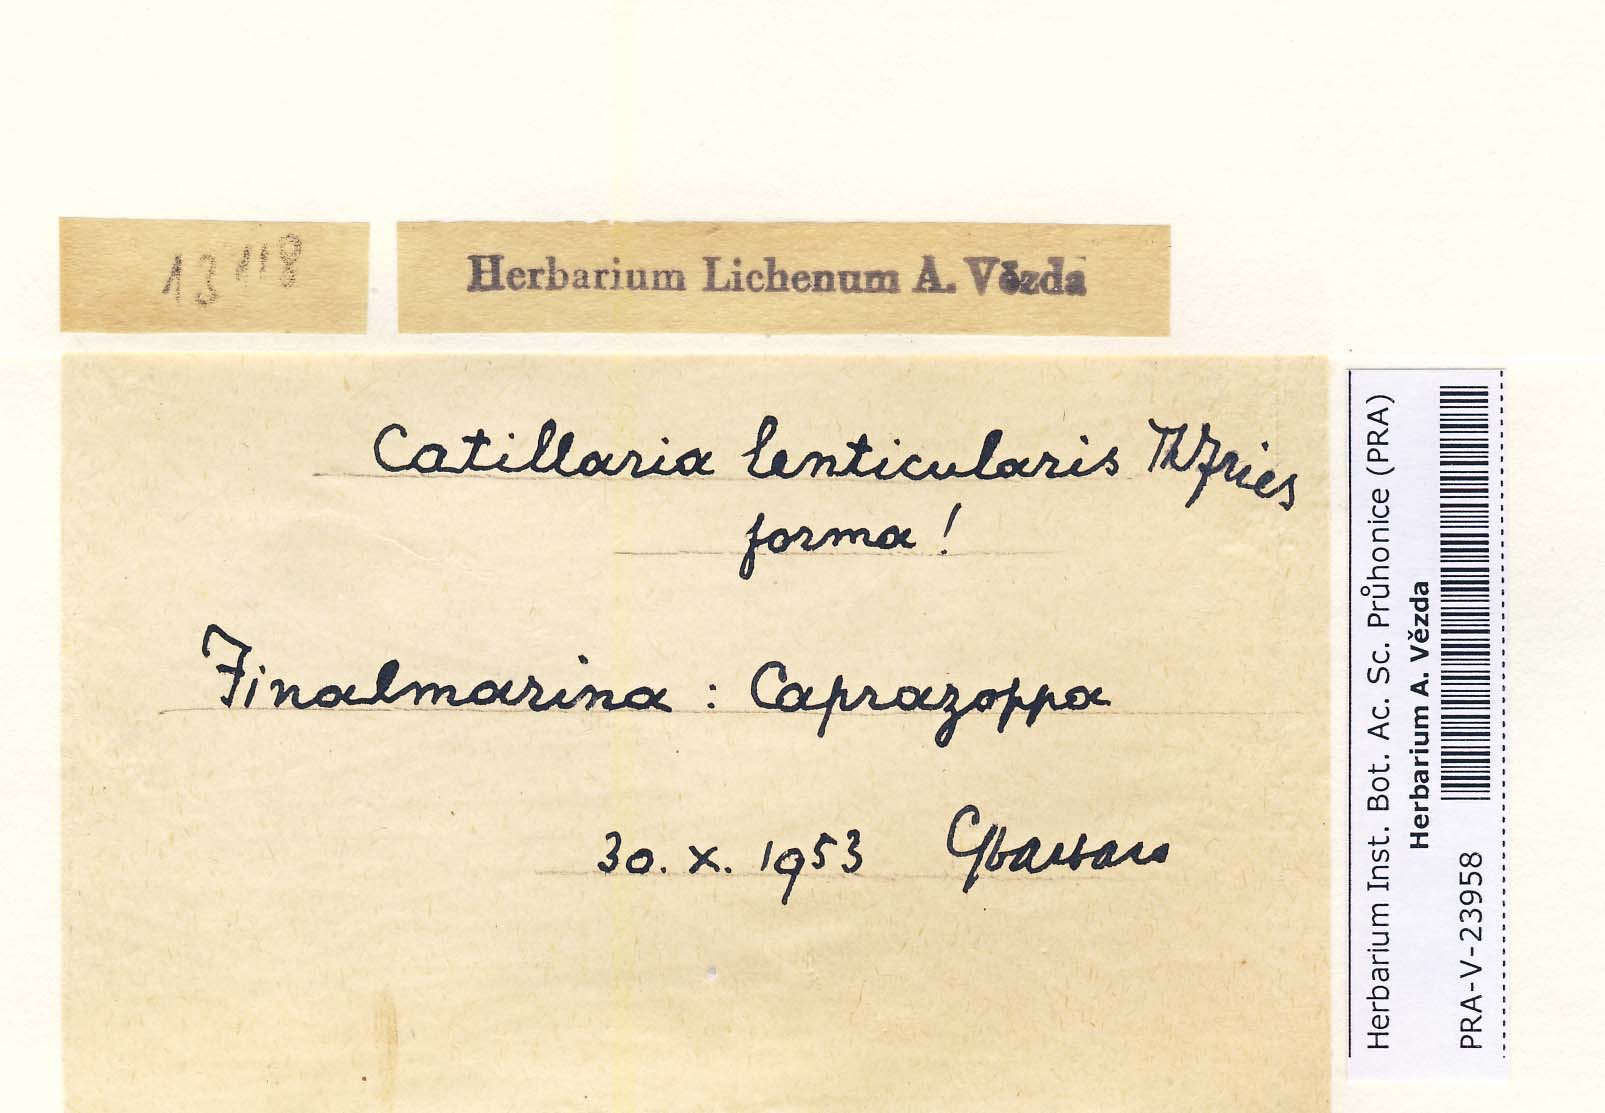 13118
Herbarium Lichenum A. Vězda
Catillaria lenticularis Th Fries
forma !
Finalmarina : Caprazoppa
30. X. 1953
Herbarium Inst. Bot. Ac. Sc. Průhonice (PRA)
Herbarium A. Vězda
PRA-V-23958